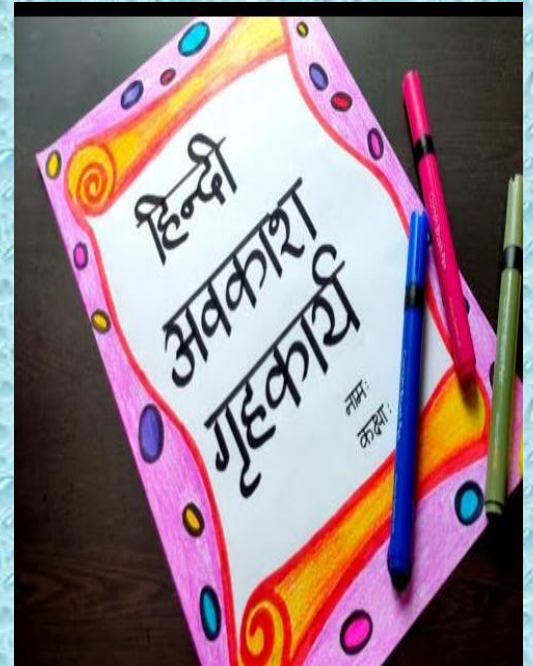 हिन्दी
अवकाश
गृहकार्य
नाम:
कक्षा: